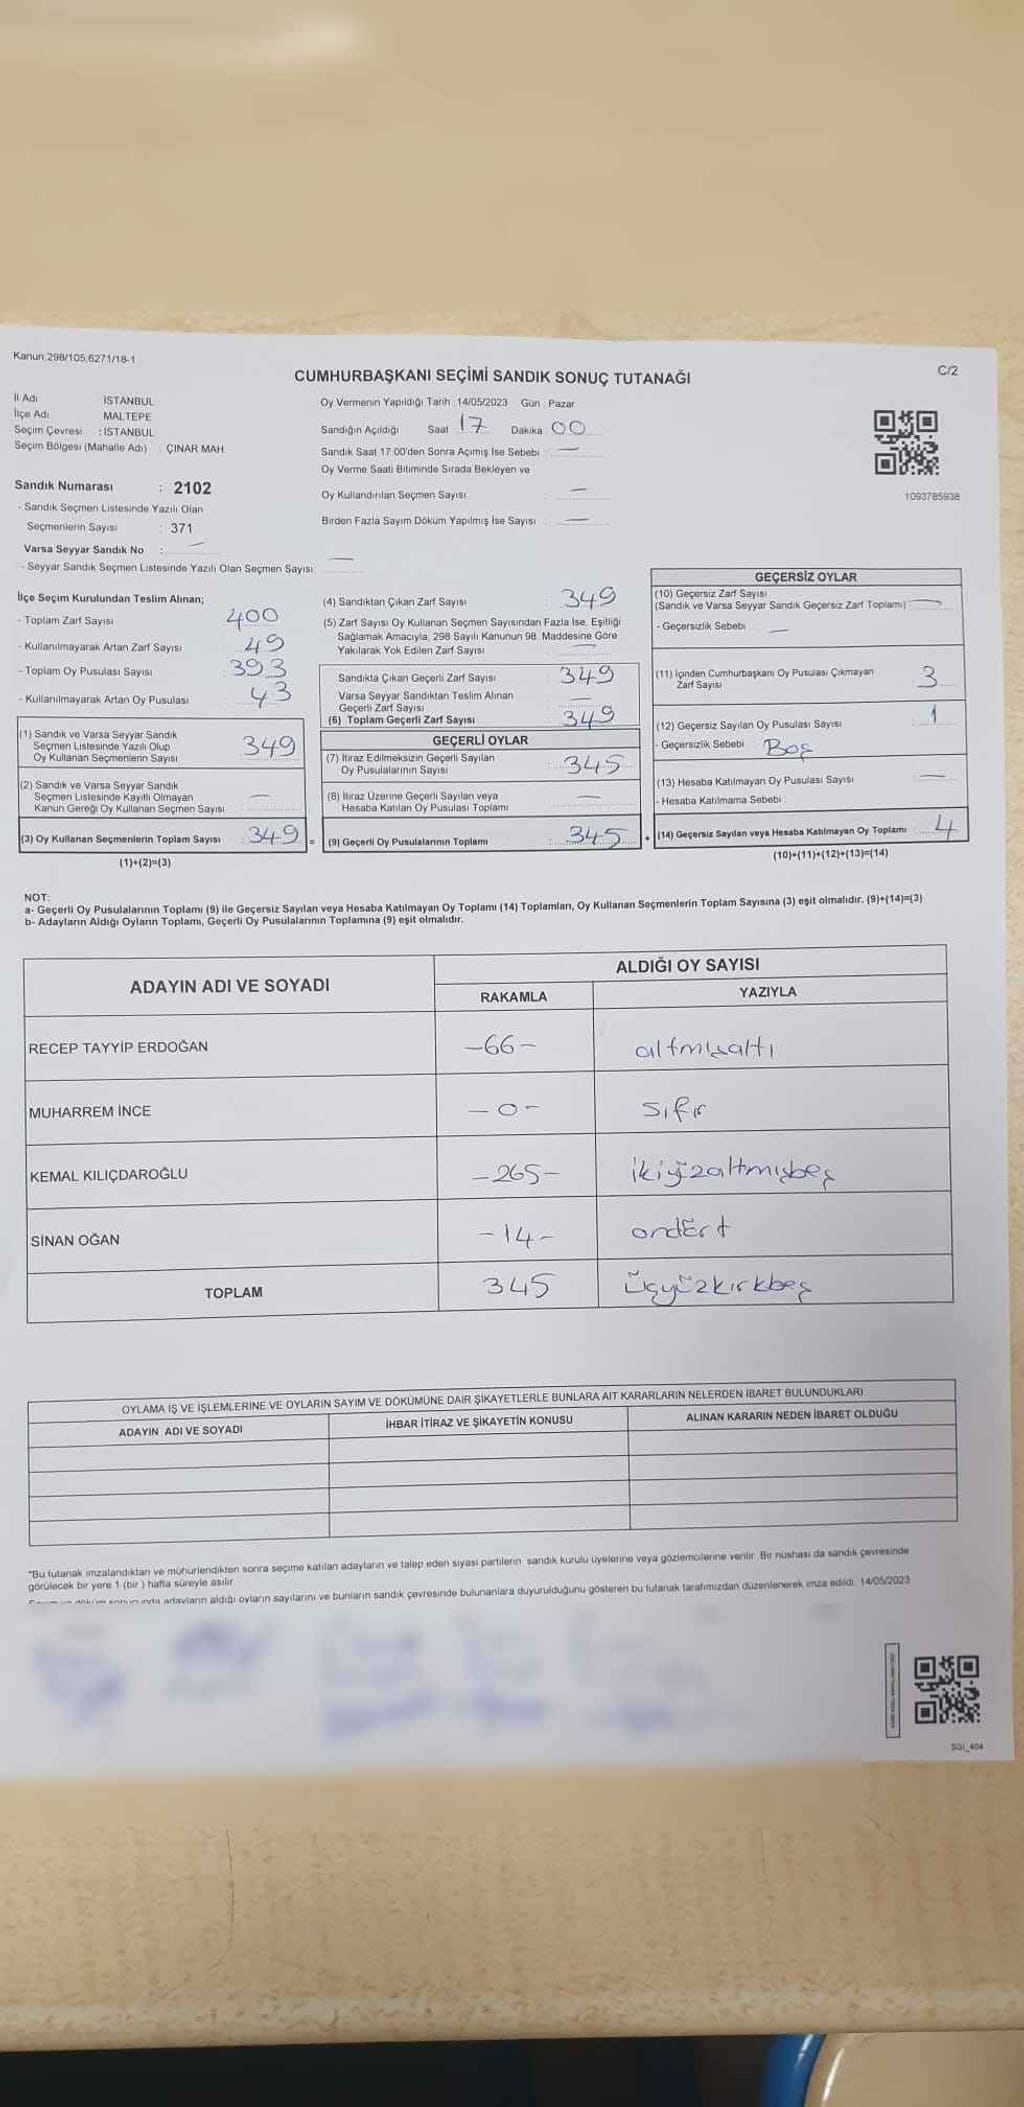 Kanun 298/105,6271/18-1
C/2
CUMHURBAŞKANI SEÇİMİ SANDIK SONUÇ TUTANAĞI
İl Adı İSTANBUL
İlçe Adı MALTEPE
Seçim Çevresi : İSTANBUL
Seçim Bölgesi (Mahalle Adı) : ÇINAR MAH.
Sandık Numarası : 2102
- Sandık Seçmen Listesinde Yazılı Olan
Seçmenlerin Sayısı : 371
Varsa Seyyar Sandık No : —
- Seyyar Sandık Seçmen Listesinde Yazılı Olan Seçmen Sayısı: —
Oy Vermenin Yapıldığı Tarih :14/05/2023 Gün : Pazar
Sandığın Açıldığı Saat 17 Dakika 00
Sandık Saat 17.00'den Sonra Açımış İse Sebebi —
Oy Verme Saati Bitiminde Sırada Bekleyen ve
Oy Kullandırılan Seçmen Sayısı : —
Birden Fazla Sayım Döküm Yapılmış İse Sayısı : —
1093785938
İlçe Seçim Kurulundan Teslim Alınan;
- Toplam Zarf Sayısı 400
- Kullanılmayarak Artan Zarf Sayısı 49
- Toplam Oy Pusulası Sayısı 393
- Kullanılmayarak Artan Oy Pusulası 43
(1) Sandık ve Varsa Seyyar Sandık
Seçmen Listesinde Yazılı Olup
Oy Kullanan Seçmenlerin Sayısı 349
(2) Sandık ve Varsa Seyyar Sandık
Seçmen Listesinde Kayıtlı Olmayan
Kanun Gereği Oy Kullanan Seçmen Sayısı —
(3) Oy Kullanan Seçmenlerin Toplam Sayısı 349 =
(1)+(2)=(3)
(4) Sandıktan Çıkan Zarf Sayısı : 349
(5) Zarf Sayısı Oy Kullanan Seçmen Sayısından Fazla İse, Eşitliği
Sağlamak Amacıyla, 298 Sayılı Kanunun 98. Maddesine Göre
Yakılarak Yok Edilen Zarf Sayısı : —
Sandıkta Çıkan Geçerli Zarf Sayısı : 349
Varsa Seyyar Sandıktan Teslim Alınan
Geçerli Zarf Sayısı —
(6) Toplam Geçerli Zarf Sayısı : 349
GEÇERLİ OYLAR
(7) İtiraz Edilmeksizin Geçerli Sayılan
Oy Pusulalarının Sayısı : 345
(8) İtiraz Üzerine Geçerli Sayılan veya
Hesaba Katılan Oy Pusulası Toplamı : —
(9) Geçerli Oy Pusulalarının Toplamı : 345 +
GEÇERSİZ OYLAR
(10) Geçersiz Zarf Sayısı
(Sandık ve Varsa Seyyar Sandık Geçersiz Zarf Toplamı) —
- Geçersizlik Sebebi : —
(11) İçinden Cumhurbaşkanı Oy Pusulası Çıkmayan
Zarf Sayısı 3
(12) Geçersiz Sayılan Oy Pusulası Sayısı : 1
- Geçersizlik Sebebi : Boş
(13) Hesaba Katılmayan Oy Pusulası Sayısı : —
- Hesaba Katılmama Sebebi :
(14) Geçersiz Sayılan veya Hesaba Katılmayan Oy Toplamı : 4
(10)+(11)+(12)+(13)=(14)
NOT:
a- Geçerli Oy Pusulalarının Toplamı (9) ile Geçersiz Sayılan veya Hesaba Katılmayan Oy Toplamı (14) Toplamları, Oy Kullanan Seçmenlerin Toplam Sayısına (3) eşit olmalıdır. (9)+(14)=(3)
b- Adayların Aldığı Oyların Toplamı, Geçerli Oy Pusulalarının Toplamına (9) eşit olmalıdır.
ADAYIN ADI VE SOYADI ALDIĞI OY SAYISI
RAKAMLA YAZIYLA
RECEP TAYYİP ERDOĞAN -66- altmışaltı
MUHARREM İNCE -0- sıfır
KEMAL KILIÇDAROĞLU -265- ikiyüzaltmışbeş
SİNAN OĞAN -14- ondört
TOPLAM 345 üçyüzkırkbeş
OYLAMA İŞ VE İŞLEMLERİNE VE OYLARIN SAYIM VE DÖKÜMÜNE DAİR ŞİKAYETLERLE BUNLARA AİT KARARLARIN NELERDEN İBARET BULUNDUKLARI
ADAYIN ADI VE SOYADI İHBAR İTİRAZ VE ŞİKAYETİN KONUSU ALINAN KARARIN NEDEN İBARET OLDUĞU
*Bu tutanak imzalandıktan ve mühürlendikten sonra seçime katılan adayların ve talep eden siyasi partilerin sandık kurulu üyelerine veya gözlemcilerine verilir. Bir nüshası da sandık çevresinde
görülecek bir yere 1 (bir ) hafta süreyle asılır.
adayların aldığı oyların sayılarını ve bunların sandık çevresinde bulunanlara duyurulduğunu gösteren bu tutanak tarafımızdan düzenlenerek imza edildi. 14/05/2023